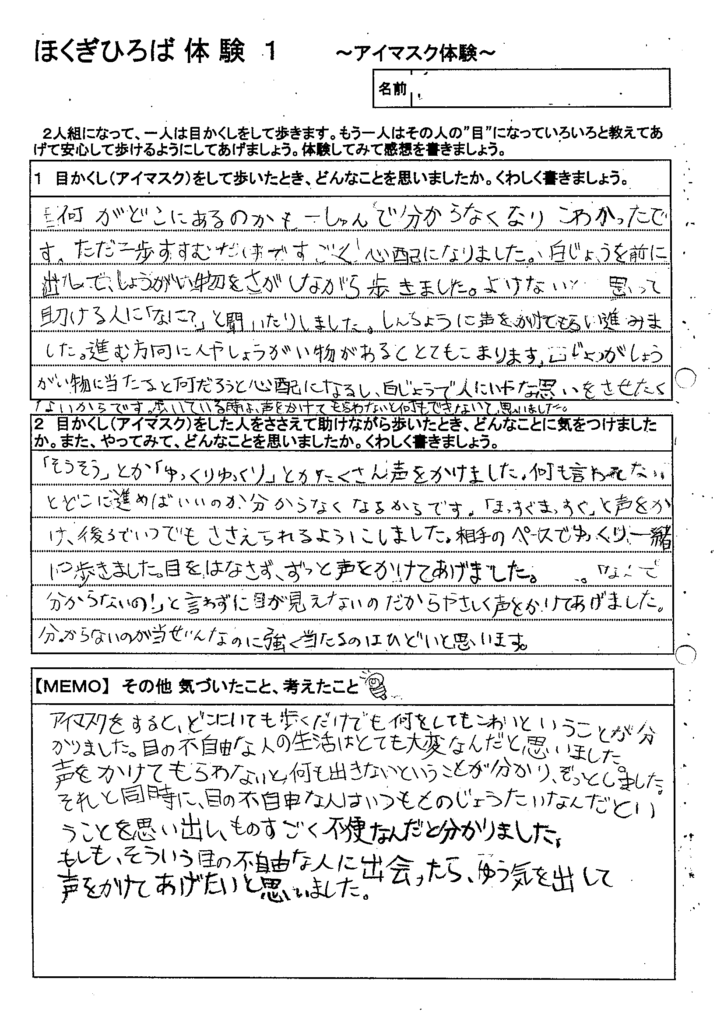 ほくぎひろば 体 験 1 ～アイマスク体験～
名前
2人組になって、一人は目かくしをして歩きます。もう一人はその人の"目"になっていろいろと教えてあ
げて安心して歩けるようにしてあげましょう。体験してみて感想を書きましょう。
1 目かくし(アイマスク)をして歩いたとき、どんなことを思いましたか。くわしく書きましょう。
何がどこにあるのかも一しゅんで分からなくなりこわかったで
す。ただ一歩すすむだけですごく心配になりました。白じょうを前に
出して、しょうがい物をさがしながら歩きました。よけない 思って
助ける人に「なに?」と聞いたりしました。しんちょうに声をかけてもらい進みま
した。進む方向に人やしょうがい物があるととてもこまります。白じょうがしょう
がい物に当たると何だろうと心配になるし、白じょうで人にいやな思いをさせたく
ないからです。歩いている時は、声をかけてもらわないと何もできないと思いました。
2 目かくし(アイマスク)をした人をささえて助けながら歩いたとき、どんなことに気をつけました
か。また、やってみて、どんなことを思いましたか。くわしく書きましょう。
「そうそう」とか「ゆっくりゆっくり」とかたくさん声をかけました。何も言われない
とどこに進めばいいのか分からなくなるからです。「まっすぐまっすぐ」と声をか
け、後ろでいつでもささえられるようにしました。相手のペースでゆっくり、一緒
に歩きました。目をはなさず、ずっと声をかけてあげました。 「なんで
分からないの!」と言わずに目が見えないのだからやさしく声をかけてあげました。
分からないのが当ぜんなのに強く当たるのはひどいと思います。
【MEMO】 その他 気づいたこと、考えたこと
アイマスクをすると、どこにいても歩くだけでも何をしてもこわいということが分
かりました。目の不自由な人の生活はとても大変なんだと思いました
声をかけてもらわないと、何も出きないということが分かり、ぞっとしました。
それと同時に、目の不自由な人はいつもそのじょうたいなんだとい
うことを思い出し、ものすごく不便なんだと分かりました。
もしも、そういう目の不自由な人に出会ったら、ゆう気を出して
声をかけてあげたいと思いました。